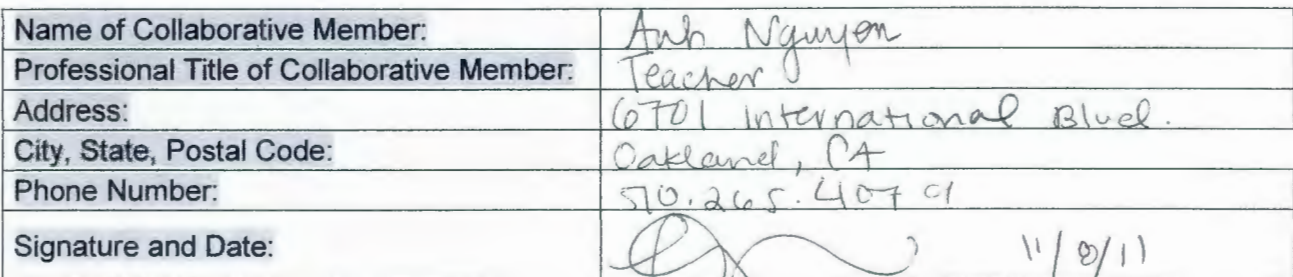 Name of Collaborative Member: Anh Nguyen
Professional Title of Collaborative Member: Teacher
Address: 6701 International Blvd.
City, State, Postal Code: Oakland, CA
Phone Number: 510.265.4079
Signature and Date: 11/8/11